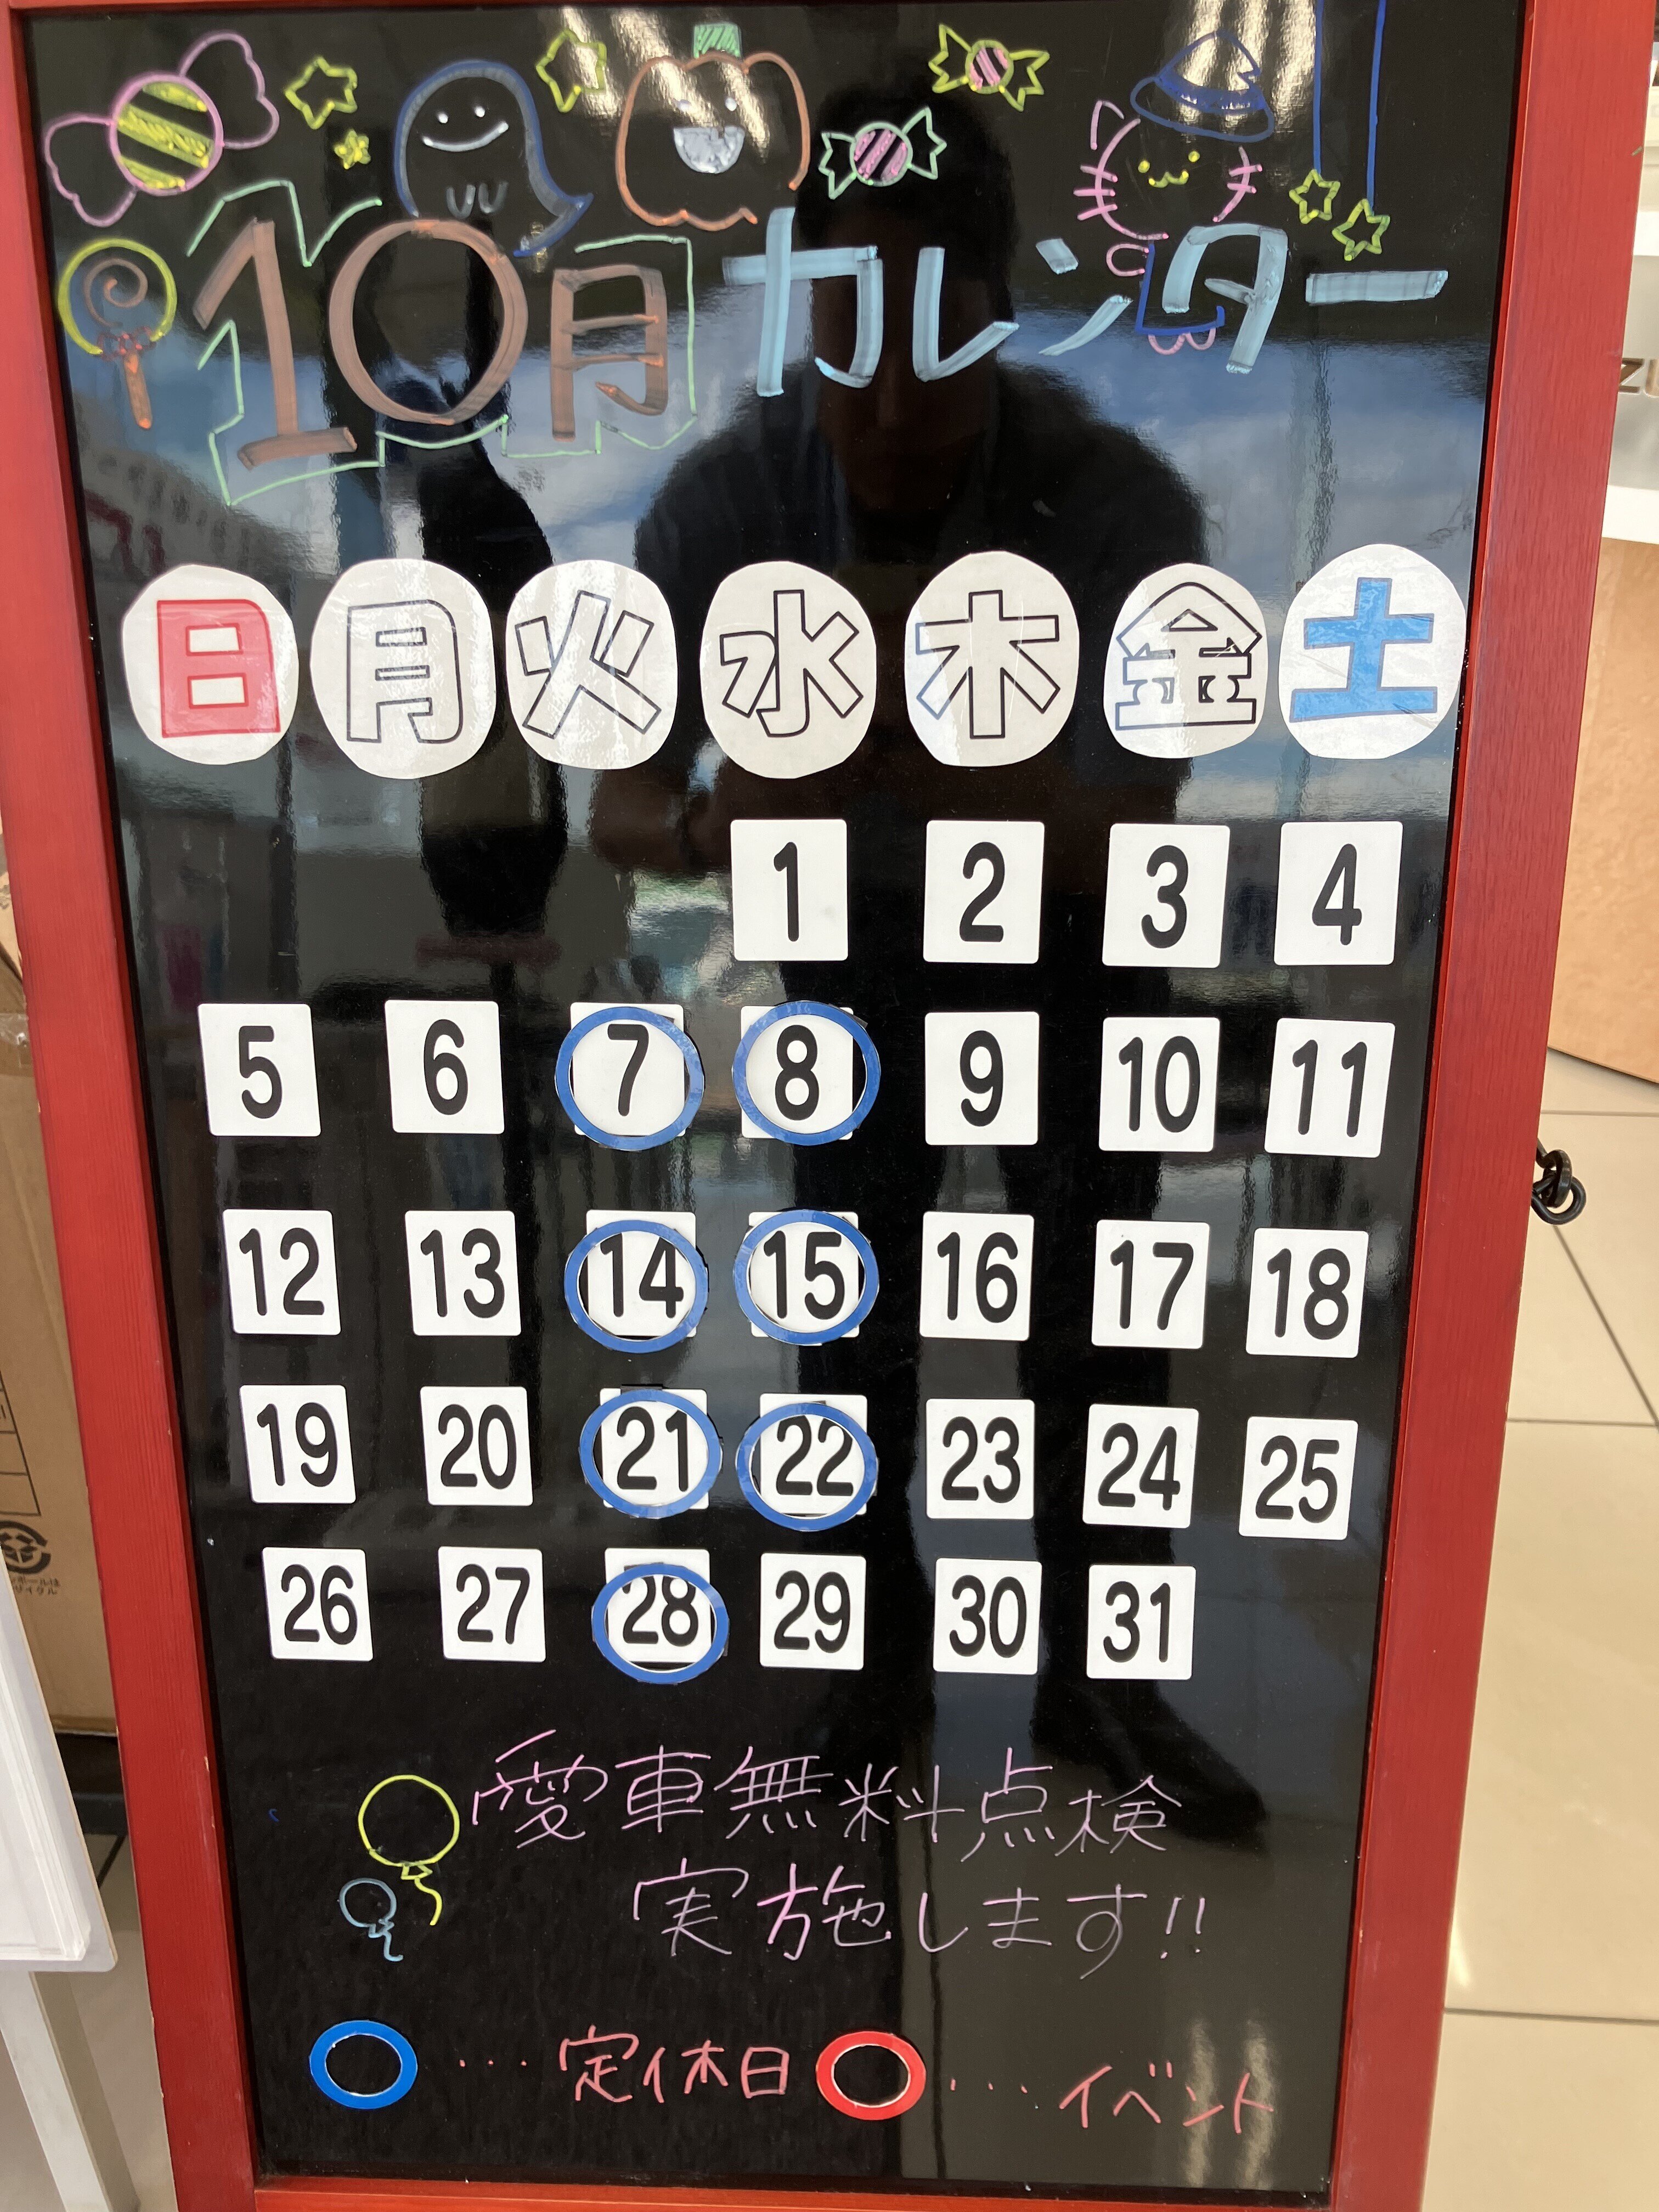 10月カレンダー
日 月 火 水 木 金 土
1 2 3 4
5 6 7 8 9 10 11
12 13 14 15 16 17 18
19 20 21 22 23 24 25
26 27 28 29 30 31
愛車無料点検
実施します!!
... 定休日 ... イベント